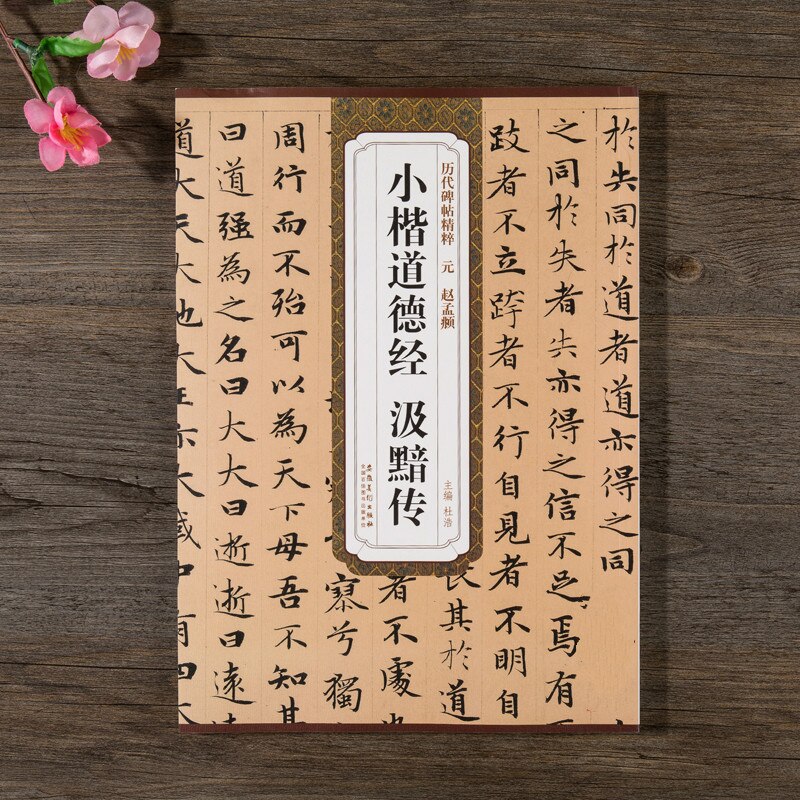 於失同於道者道亦得之同
之同於失者失亦得之信不足焉有
跂者不立跨者不行自見者不明自
其於道
者不處也
寥兮獨
周行而不殆可以為天下母吾不知其
曰道强為之名曰大大曰逝逝曰遠遠
道大天大地大王亦大域中有四大
历代碑帖精粹 元 赵孟頫
小楷道德经 汲黯传
主编 杜浩
安徽美术出版社
全国百佳图书出版单位